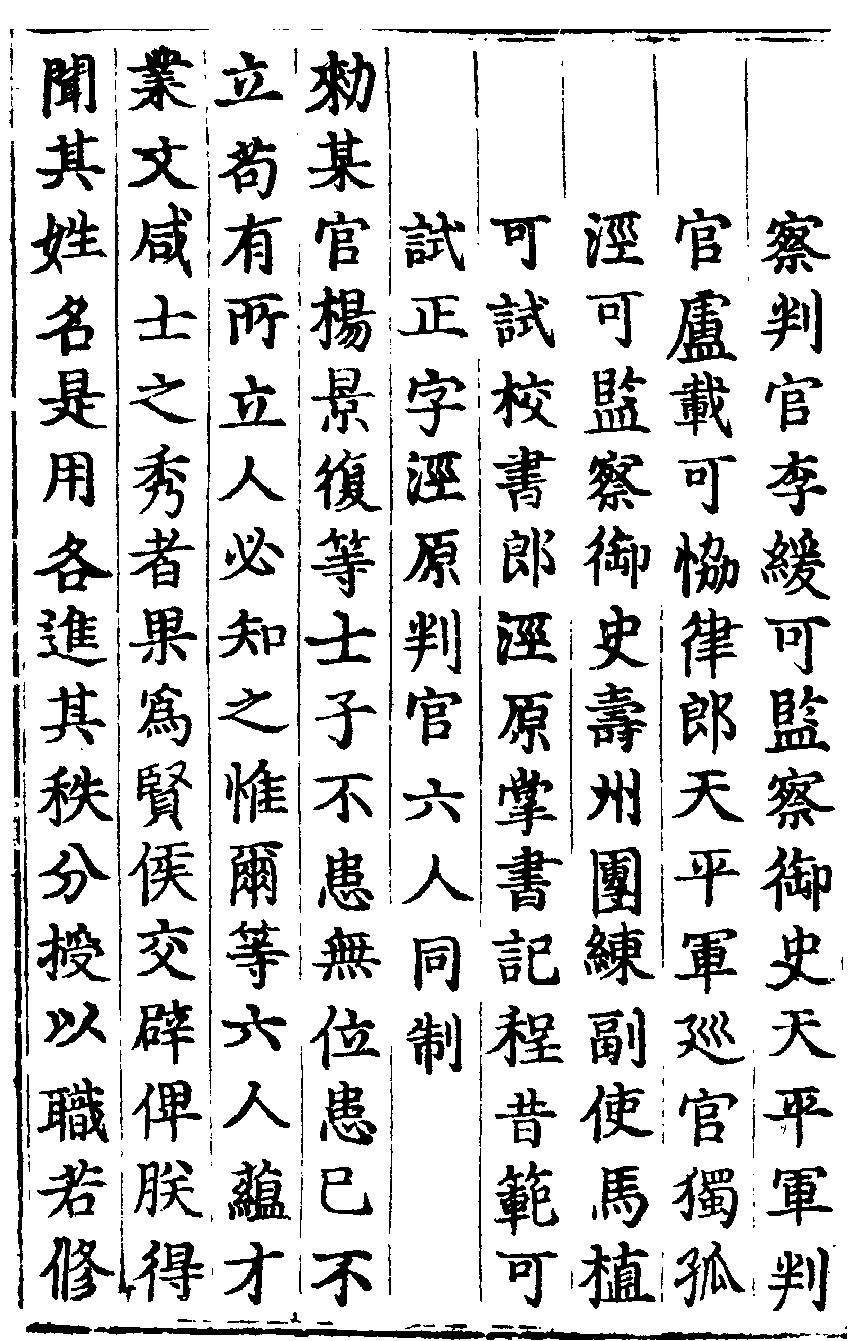 察判官李緩可監察御史天平軍判
官盧載可恊律郎天平軍廵官獨孤
涇可監察御史壽州團練副使馬植
可試校書郎涇原掌書記程昔範可
試正字涇原判官六人同制
勑某官楊景復等士子不患無位患已不
立苟有所立人必知之惟爾等六人蘊才
業文咸士之秀者果爲賢侯交辟俾朕得
聞其姓名是用各進其秩分授以職若修